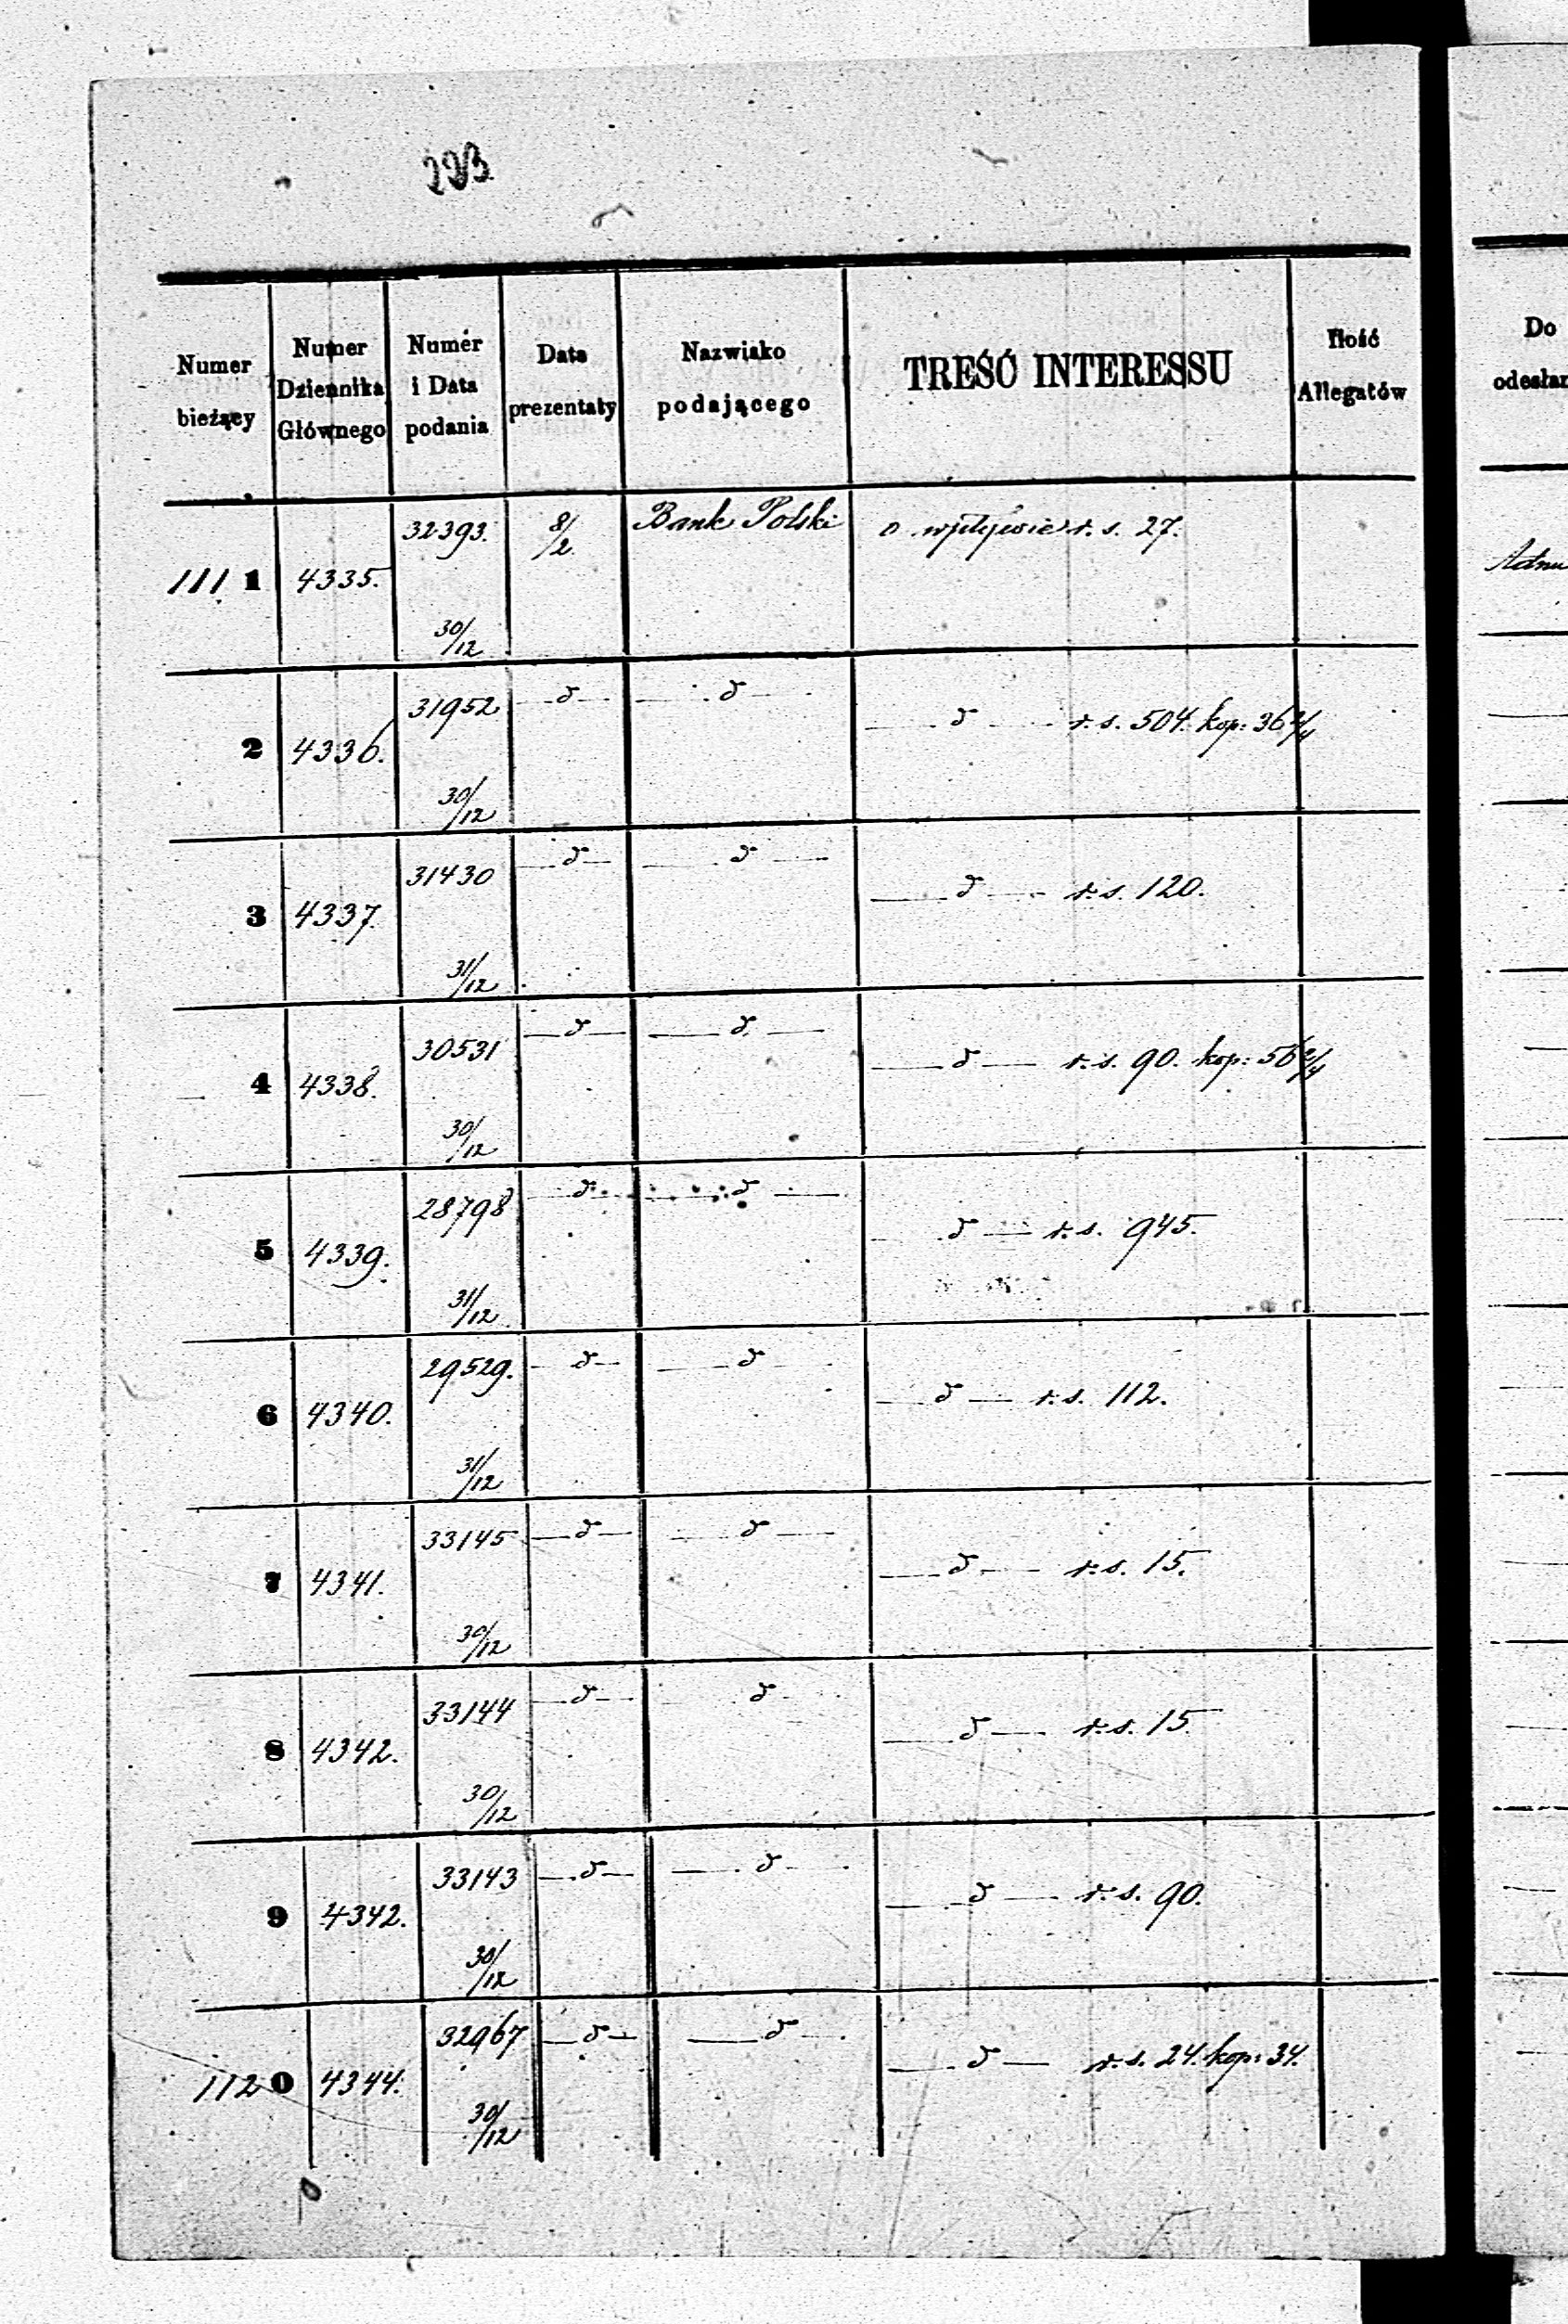 223
Numer bieżący | Numer Dziennika Głównego | Numer i Data podania | Data prezentaty | Nazwisko podającego | TREŚĆ INTERESSU | Ilość Allegatów | Do
1111 | 4335. | 32393. 30/12 | 8/2 | Bank Polski | o wpływie r. s. 27.
2 | 4336. | 31952 30/12 | —d— | —d— | —d— r. s. 504. kop: 36 2/4
3 | 4337. | 31430 31/12 | —d— | —d— | —d— r. s. 120.
4 | 4338. | 30531 30/12 | —d— | —d— | —d— r. s. 90. kop: 56 2/4
5 | 4339. | 28798 31/12 | —d— | —d— | —d— r. s. 945.
6 | 4340. | 29529. 31/12 | —d— | —d— | —d— r. s. 112.
7 | 4341. | 33145 30/12 | —d— | —d— | —d— r. s. 15.
8 | 4342. | 33144 30/12 | —d— | —d— | —d— r. s. 15.
9 | 4342. | 33143 30/12 | —d— | —d— | —d— r. s. 90.
1120 | 4344. | 32967 30/12 | —d— | —d— | —d— r. s. 24. kop: 34.